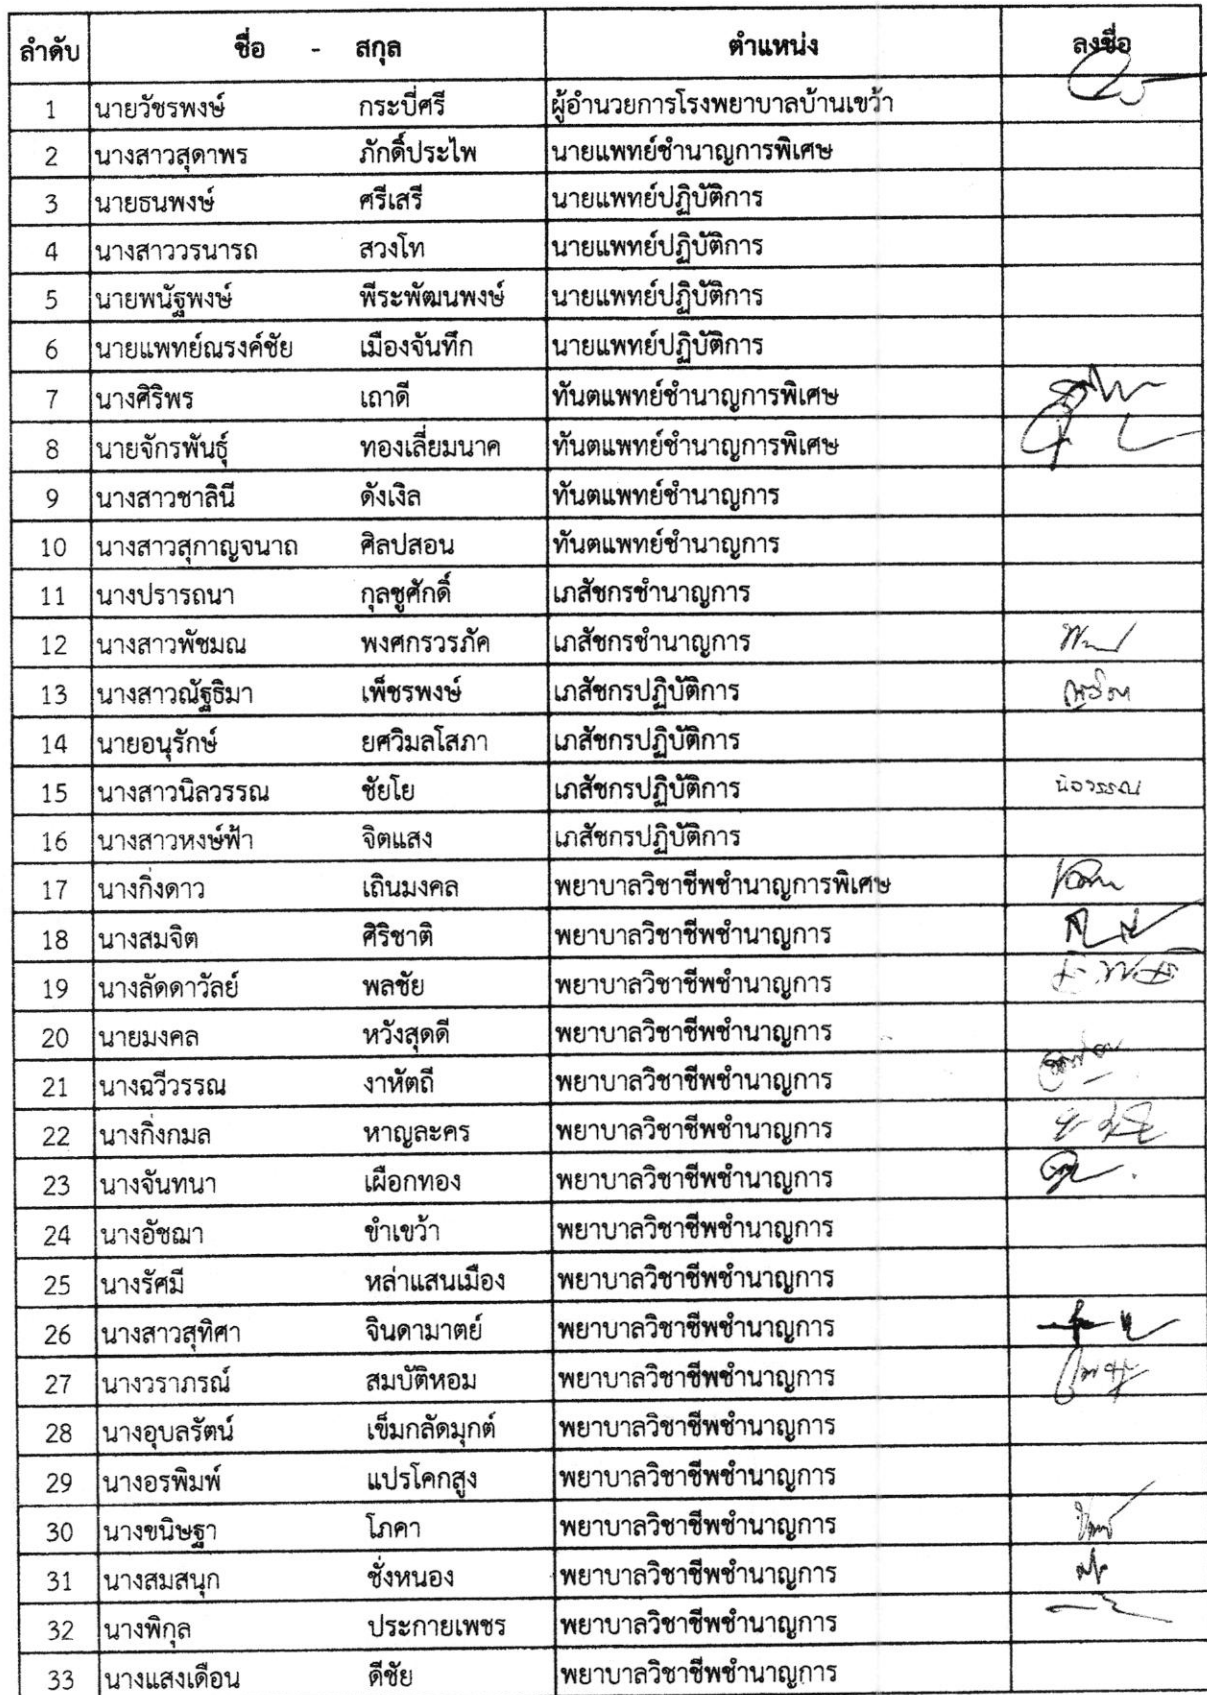 ลำดับ ชื่อ - สกุล ตำแหน่ง ลงชื่อ
1 นายวัชรพงษ์ กระบี่ศรี ผู้อำนวยการโรงพยาบาลบ้านเขว้า
2 นางสาวสุดาพร ภักดิ์ประไพ นายแพทย์ชำนาญการพิเศษ
3 นายธนพงษ์ ศรีเสรี นายแพทย์ปฏิบัติการ
4 นางสาววรนารถ สวงโท นายแพทย์ปฏิบัติการ
5 นายพนัฐพงษ์ พีระพัฒนพงษ์ นายแพทย์ปฏิบัติการ
6 นายแพทย์ณรงค์ชัย เมืองจันทึก นายแพทย์ปฏิบัติการ
7 นางศิริพร เถาดี ทันตแพทย์ชำนาญการพิเศษ
8 นายจักรพันธุ์ ทองเลี่ยมนาค ทันตแพทย์ชำนาญการพิเศษ
9 นางสาวชาลินี ดังเงิล ทันตแพทย์ชำนาญการ
10 นางสาวสุกาญจนาถ ศิลปสอน ทันตแพทย์ชำนาญการ
11 นางปรารถนา กุลชูศักดิ์ เภสัชกรชำนาญการ
12 นางสาวพัชมณ พงศกรวรภัค เภสัชกรชำนาญการ
13 นางสาวณัฐธิมา เพ็ชรพงษ์ เภสัชกรปฏิบัติการ
14 นายอนุรักษ์ ยศวิมลโสภา เภสัชกรปฏิบัติการ
15 นางสาวนิลวรรณ ชัยโย เภสัชกรปฏิบัติการ นิลวรรณ
16 นางสาวหงษ์ฟ้า จิตแสง เภสัชกรปฏิบัติการ
17 นางกิ่งดาว เถินมงคล พยาบาลวิชาชีพชำนาญการพิเศษ
18 นางสมจิต ศิริชาติ พยาบาลวิชาชีพชำนาญการ
19 นางลัดดาวัลย์ พลชัย พยาบาลวิชาชีพชำนาญการ
20 นายมงคล หวังสุดดี พยาบาลวิชาชีพชำนาญการ
21 นางฉวีวรรณ งาหัตถี พยาบาลวิชาชีพชำนาญการ
22 นางกิ่งกมล หาญละคร พยาบาลวิชาชีพชำนาญการ
23 นางจันทนา เผือกทอง พยาบาลวิชาชีพชำนาญการ
24 นางอัชฌา ขำเขว้า พยาบาลวิชาชีพชำนาญการ
25 นางรัศมี หล่าแสนเมือง พยาบาลวิชาชีพชำนาญการ
26 นางสาวสุทิศา จินดามาตย์ พยาบาลวิชาชีพชำนาญการ
27 นางวราภรณ์ สมบัติหอม พยาบาลวิชาชีพชำนาญการ
28 นางอุบลรัตน์ เข็มกลัดมุกต์ พยาบาลวิชาชีพชำนาญการ
29 นางอรพิมพ์ แปรโคกสูง พยาบาลวิชาชีพชำนาญการ
30 นางขนิษฐา โภคา พยาบาลวิชาชีพชำนาญการ
31 นางสมสนุก ชั่งหนอง พยาบาลวิชาชีพชำนาญการ
32 นางพิกุล ประกายเพชร พยาบาลวิชาชีพชำนาญการ
33 นางแสงเดือน ดีชัย พยาบาลวิชาชีพชำนาญการ